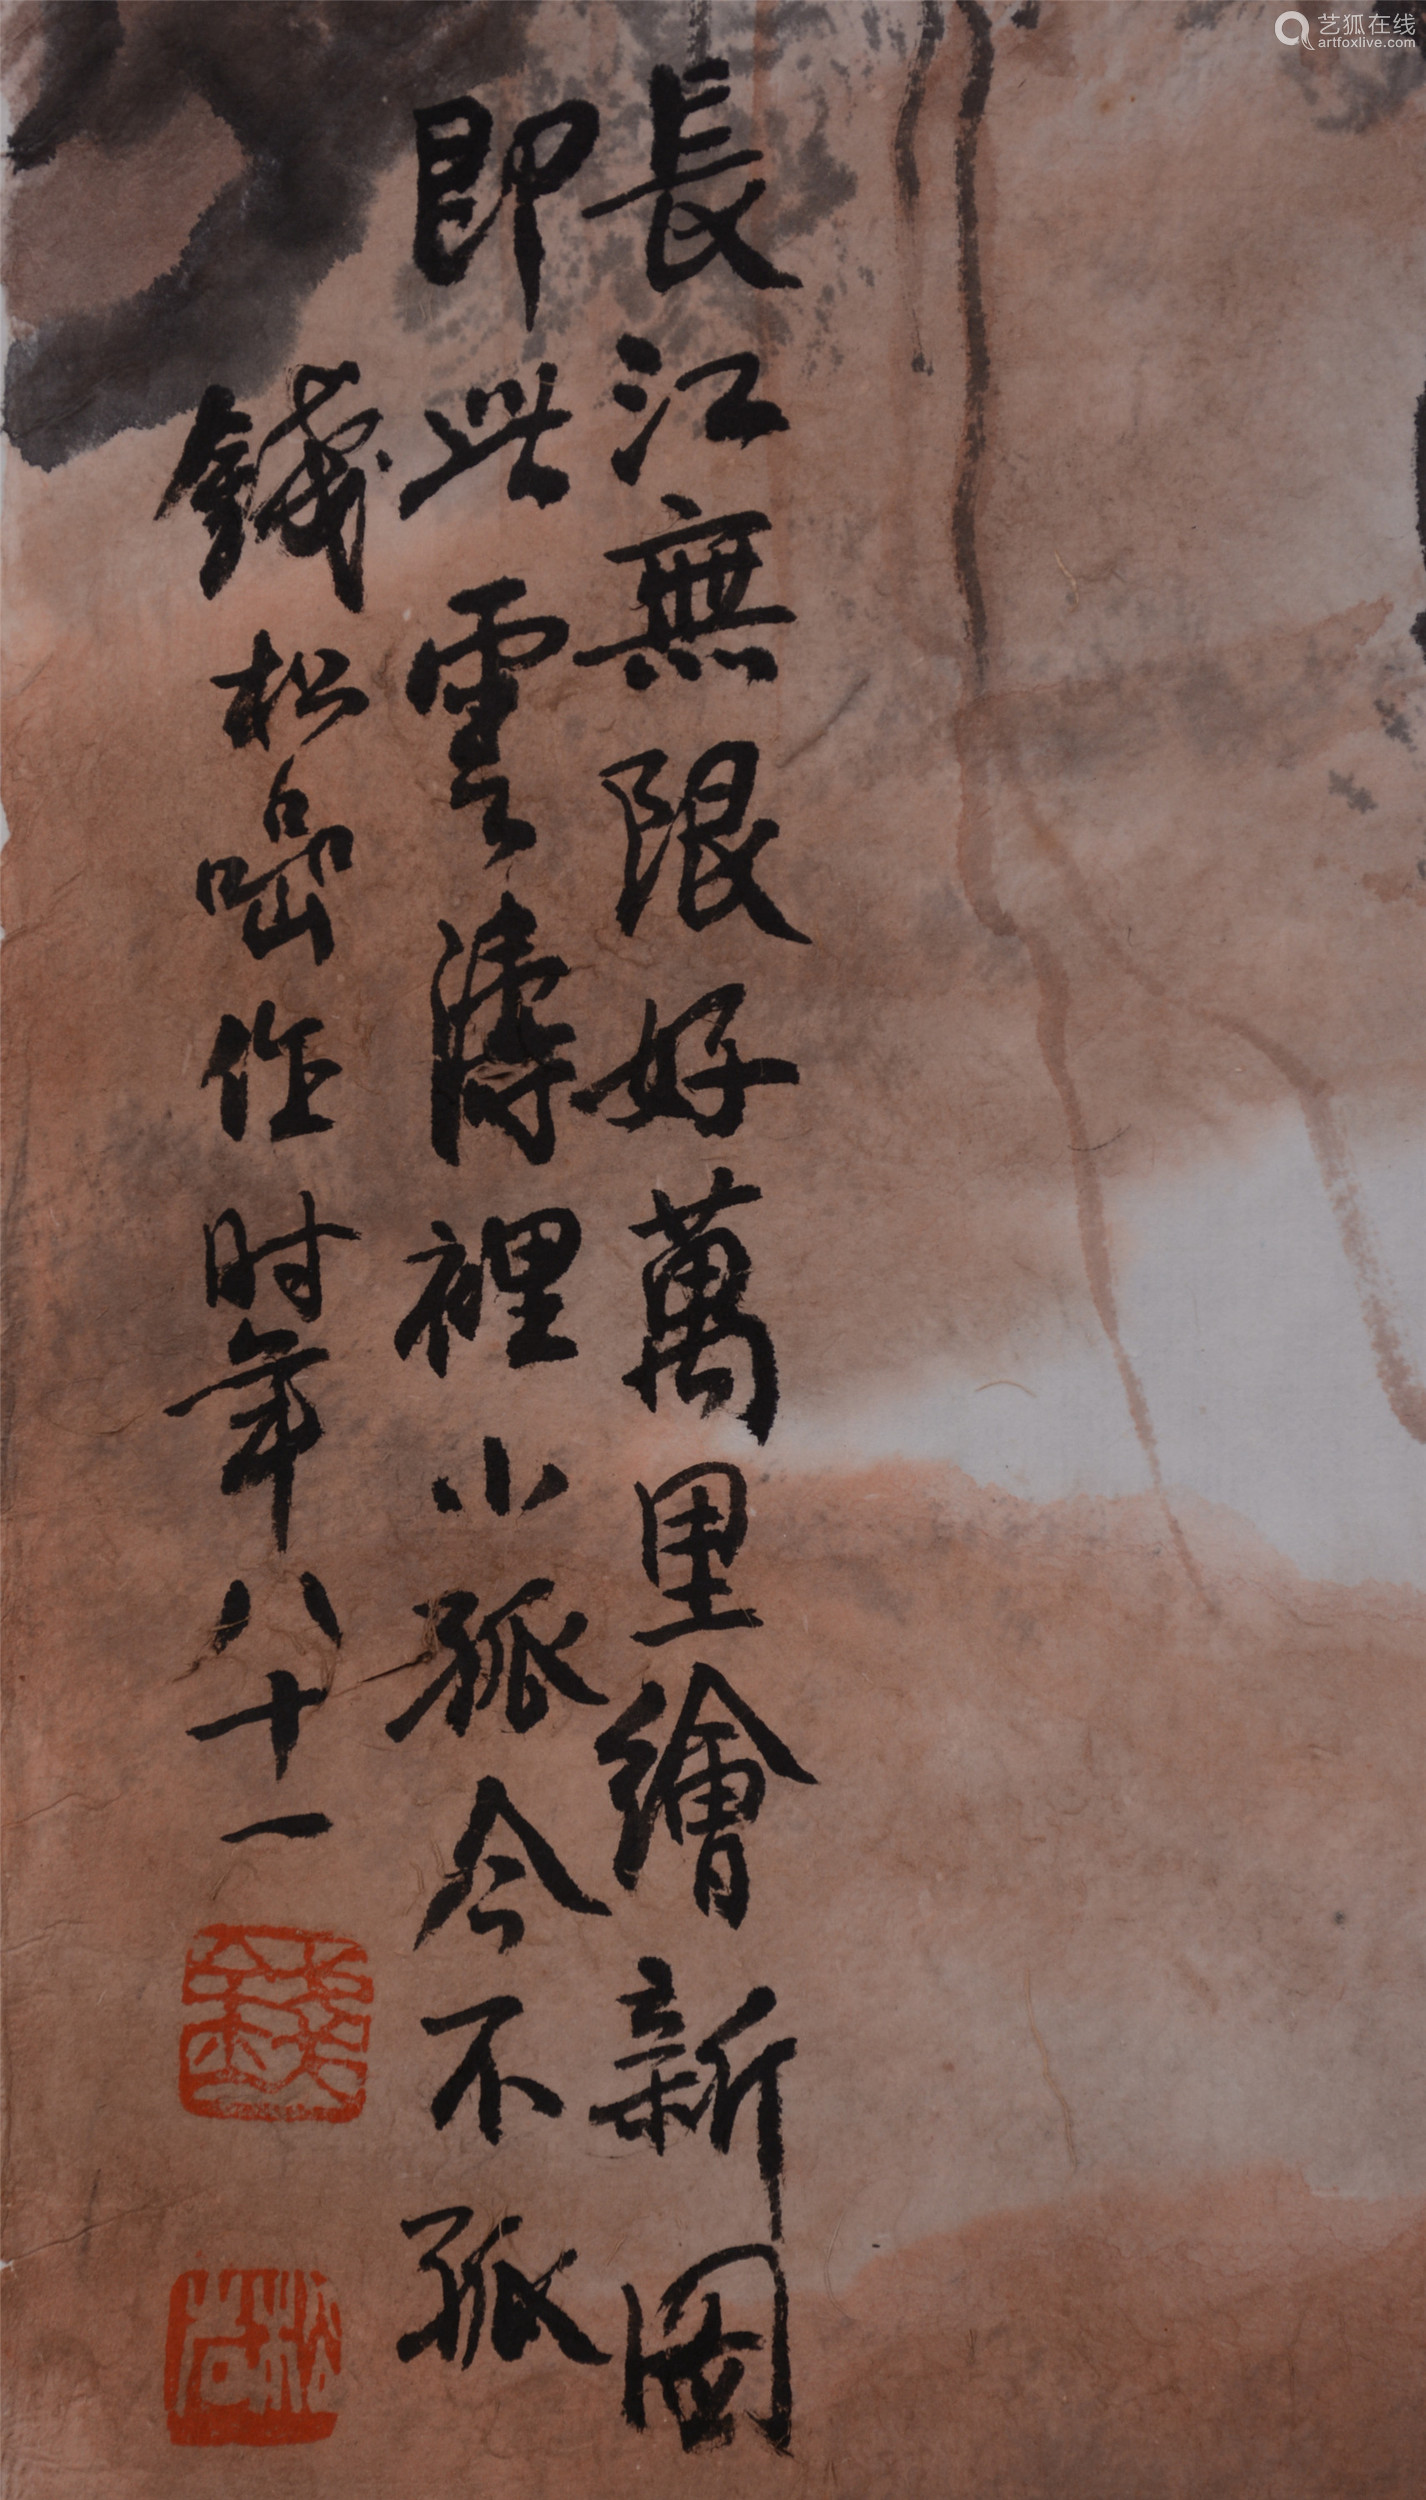 長江無限好萬里繪新圖
即此雲濤裡小孤今不孤
錢松嵒作时年八十一
錢
松嵒
艺狐在线
artfoxlive.com